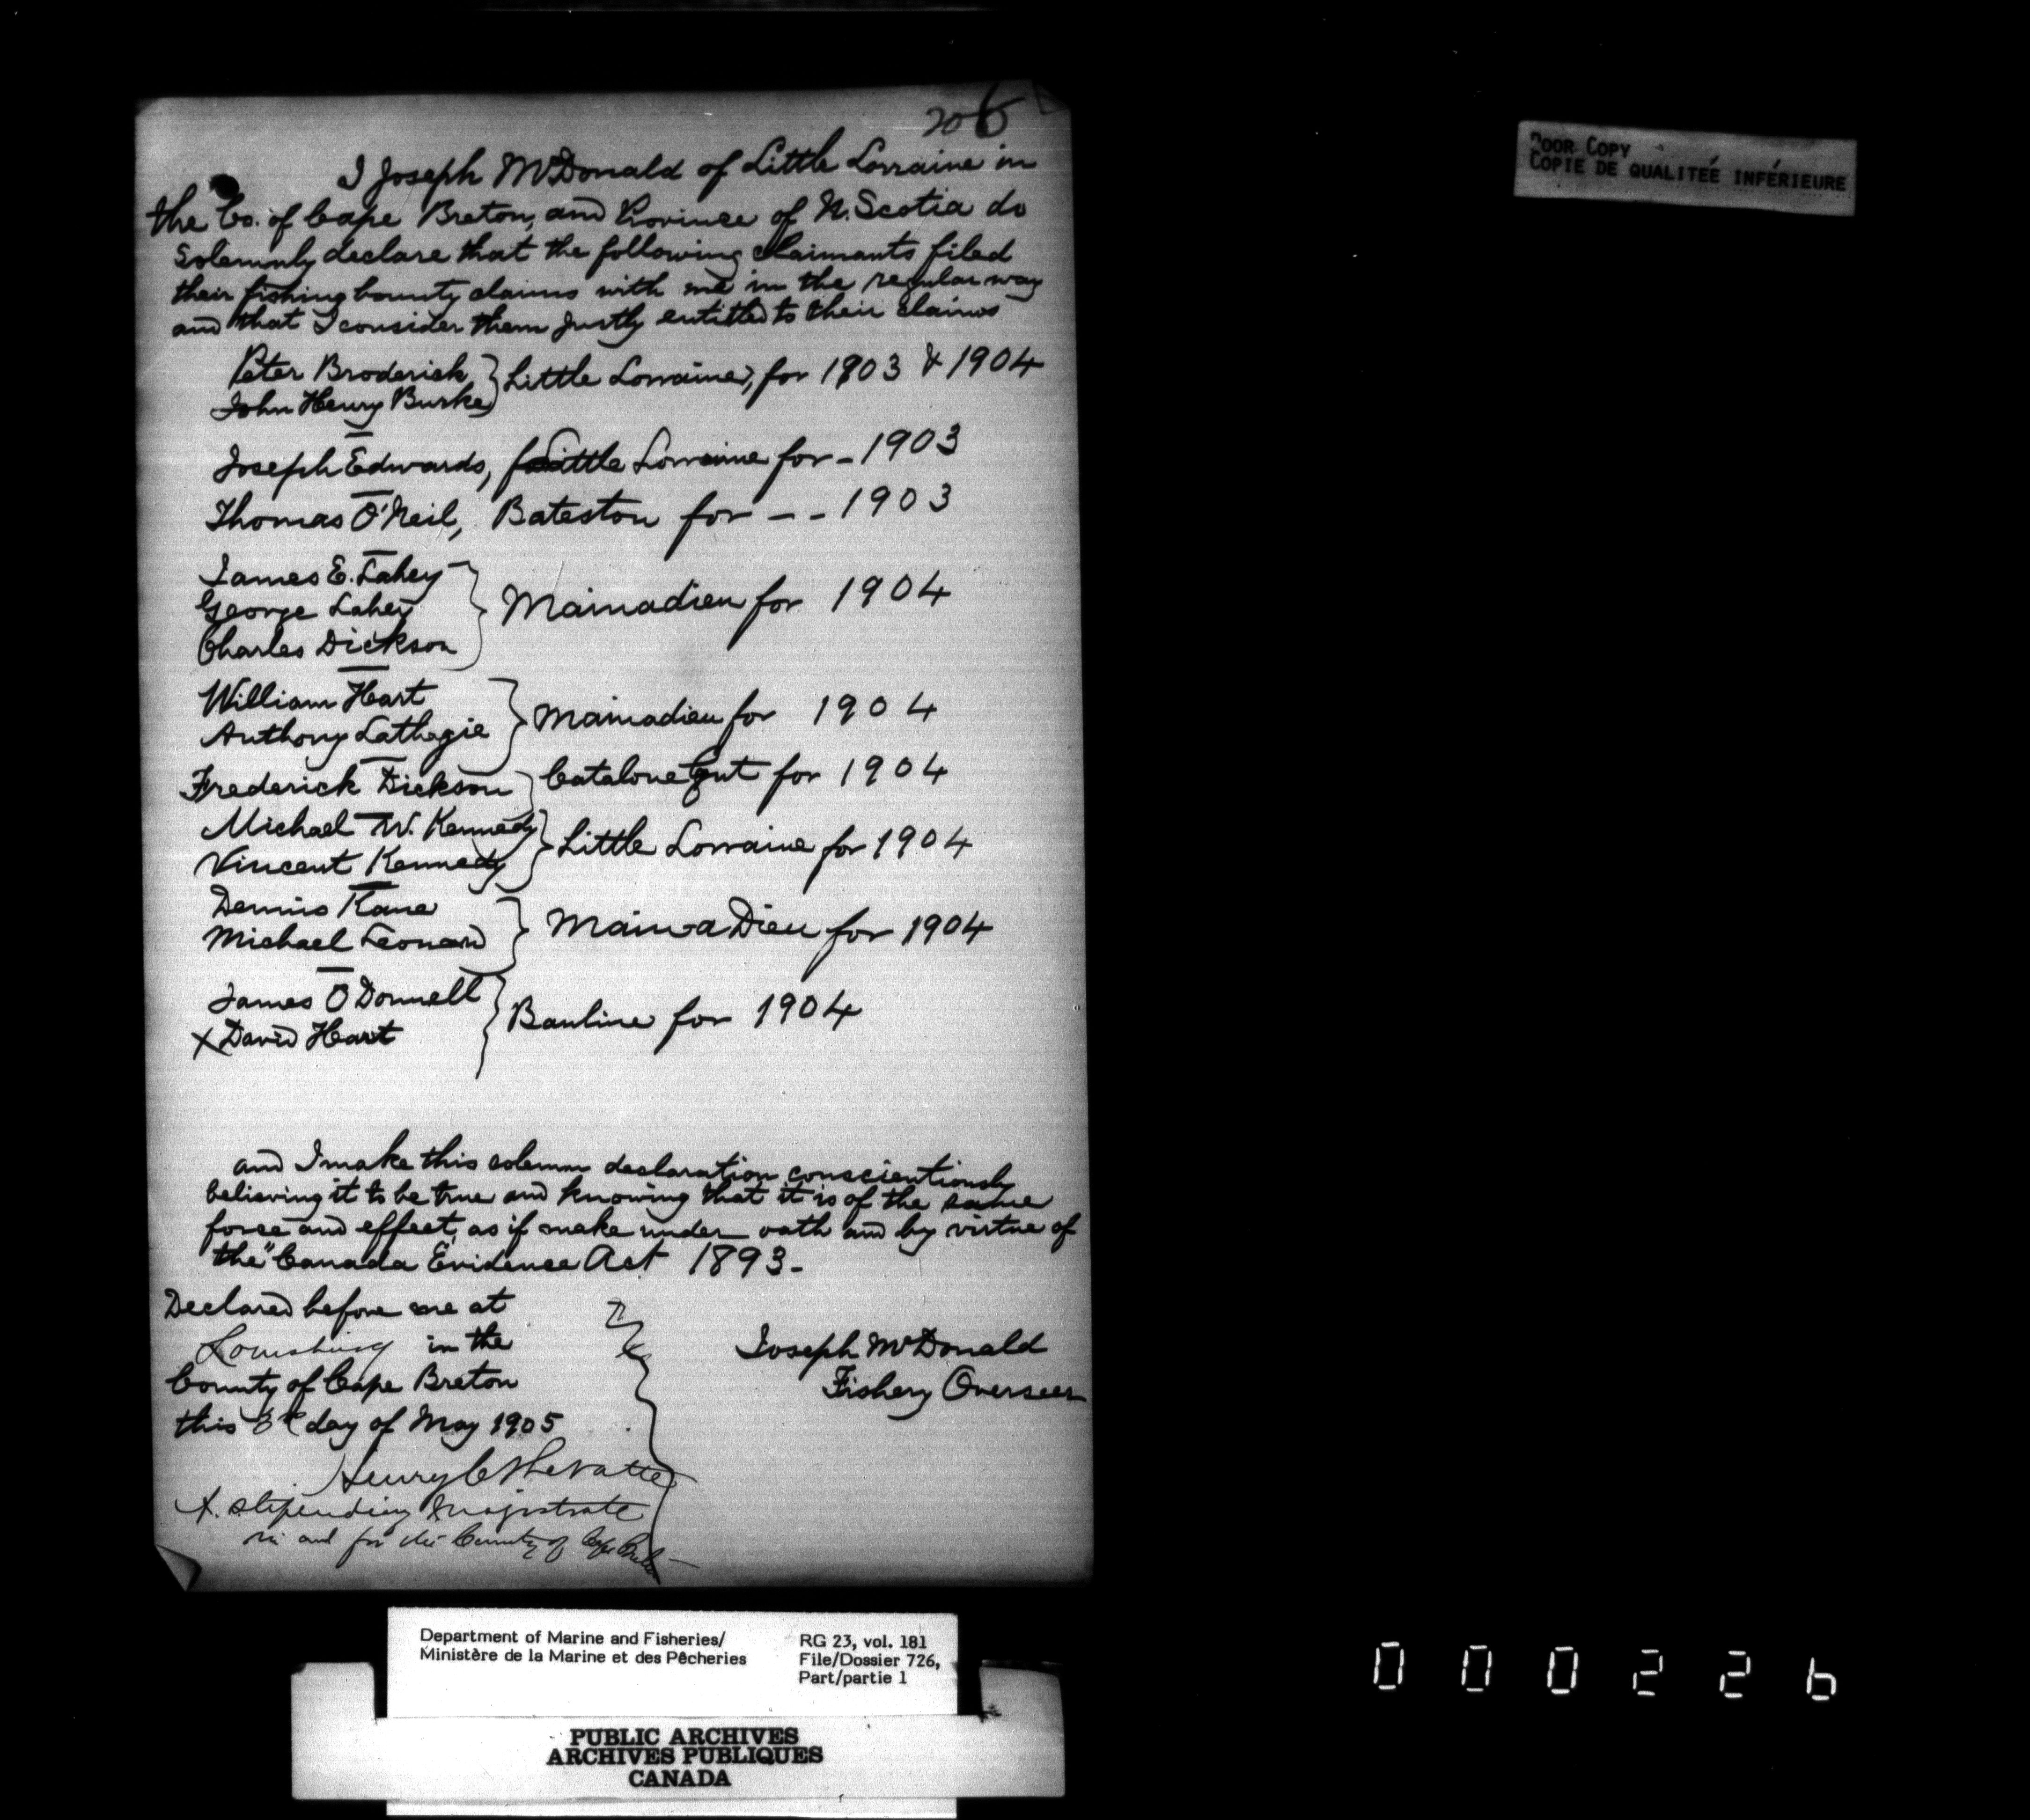 206
I Joseph McDonald of Little Lorraine in
the Co. of Cape Breton, and Province of N. Scotia do
Solemnly declare that the following claimants filed
their fishing bounty claims with me in the regular way
and that I consider them justly entitled to their claims
Peter Broderick } Little Lorraine, for 1903 & 1904
John Henry Burke
Joseph Edwards, Little Lorraine for - 1903
Thomas O'Neil, Bateston for - - 1903
James E. Lahey
George Lahey } Mainadieu for 1904
Charles Dickson
William Hart } Mainadieu for 1904
Anthony Lathegie
Frederick Dickson } Catalone Gut for 1904
Michael W. Kennedy } Little Lorraine for 1904
Vincent Kennedy
Dennis Kane } Main-a Dieu for 1904
Michael Leonard
James O Donnell } Bauline for 1904
X David Hart
and I make this solemn declaration conscientiously
believing it to be true and knowing that it is of the same
force and effect, as if make under oath and by virtue of
the "Canada Evidence Act 1893-
Declared before me at
Louisburg in the
County of Cape Breton
this day of May 1905
Joseph McDonald
Fishery Overseer
Henry C
Stipendiary Magistrate
in and for the County of Cape Breton
POOR COPY
COPIE DE QUALITEÉ INFÉRIEURE
Department of Marine and Fisheries/
Ministère de la Marine et des Pêcheries
RG 23, vol. 181
File/Dossier 726,
Part/partie 1
PUBLIC ARCHIVES
ARCHIVES PUBLIQUES
CANADA
000226